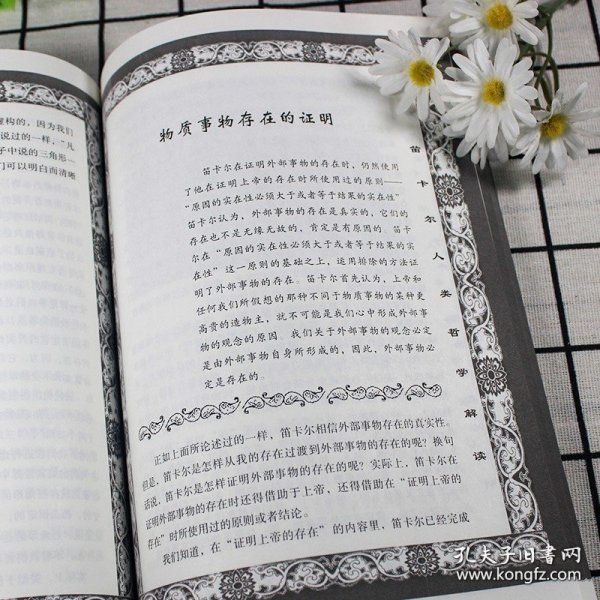 构的，因为我们
说过的一样，“凡
子中说的三角形一
们可以明白而清晰
物质事物存在的证明
笛卡尔在证明外部事物的存在时，仍然使用
了他在证明上帝的存在时所使用过的原则——
“原因的实在性必须大于或者等于结果的实在性”
笛卡尔认为，外部事物的存在是真实的，它们的
存在也不是无缘无故的，肯定是有原因的。笛卡
尔在“原因的实在性必须大于或者等于结果的实
在性”这一原则的基础之上，运用排除的方法证
明了外部事物的存在。笛卡尔首先认为，上帝和
任何我们所假想的那种不同于物质事物的某种更
高贵的造物主，就不可能是我们心中形成外部事
物的观念的原因。我们关于外部事物的观念必定
是由外部事物自身所形成的，因此，外部事物必
定是存在的。
正如上面所论述过的一样，笛卡尔相信外部事物存在的真实性。
但是，笛卡尔是怎样从我的存在过渡到外部事物的存在的呢？换句
话说，笛卡尔是怎样证明外部事物的存在的呢？实际上，笛卡尔在
证明外部事物的存在时还得借助于上帝，还得借助在“证明上帝的
存在”时所使用过的原则或者结论。
我们知道，在“证明上帝的存在”的内容里，笛卡尔已经完成
笛卡尔人类哲学解读
孔夫子旧书网
www.kongfz.com